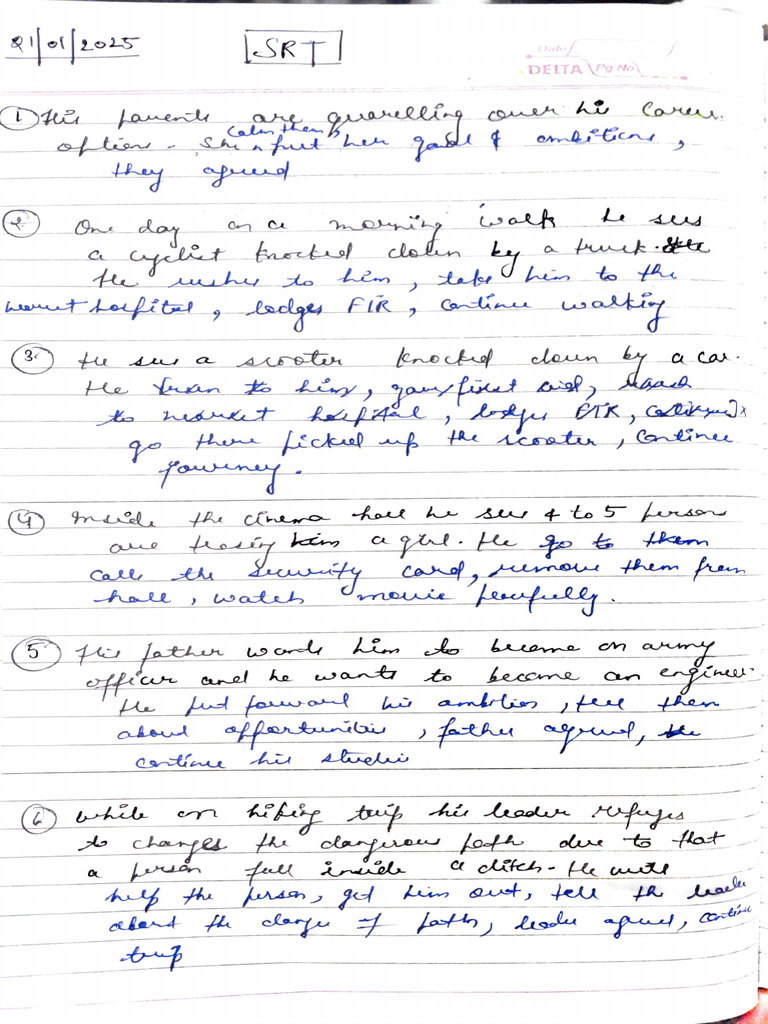 21/01/2025 SRT
Date
DELTA Pg No
① His parents are quarelling over his career
options. She calm them, put her goal & ambitions,
they agreed
② One day on a morning walk he sees
a cyclist knocked down by a truck.
He rushes to him, take him to the
nearest hospital, lodges FIR, continue walking
③ He sees a scooter knocked down by a car.
He ran to him, gave first aid,
to nearest hospital, lodges FIR,
go there picked up the scooter, continue
journey.
④ Inside the cinema hall he sees 4 to 5 persons
are teasing a girl. He go to them
calls the security card, remove them from
hall, watch movie peacefully.
⑤ His father wants him to become an army
officer and he wants to become an engineer.
He put forward his ambitios, tell them
about opportunities, father agreed,
continue his studies
⑥ While on hiking trip his leader refuges
to changes the dangerous path due to that
a person fell inside a ditch. He will
help the person, get him out, tell the leader
about the danger of path, leader agreed, continue
trip